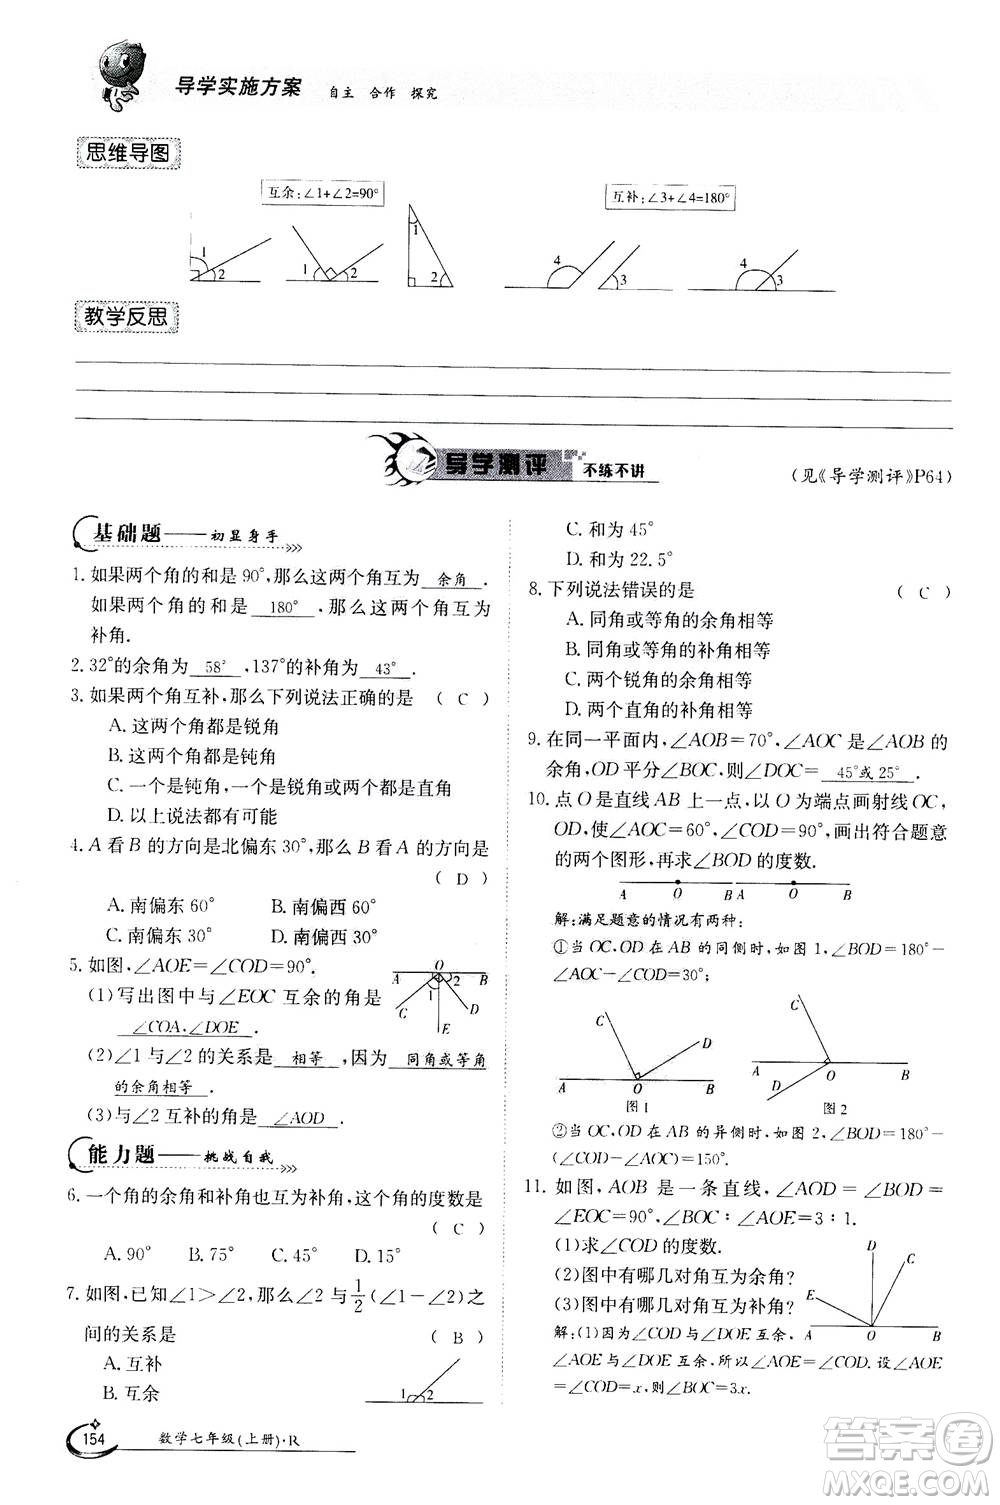 导学实施方案 自主 合作 探究
思维导图
互余:∠1+∠2=90°
互补:∠3+∠4=180°
1 2 1 2 1 2 4 3 4 3
教学反思
导学测评 不练不讲
(见《导学测评》P64)
基础题——初显身手
1. 如果两个角的和是 90°,那么这两个角互为 余角 .
如果两个角的和是 180° ,那么这两个角互为
补角.
2. 32°的余角为 58° ,137°的补角为 43° .
3. 如果两个角互补,那么下列说法正确的是 ( C )
A. 这两个角都是锐角
B. 这两个角都是钝角
C. 一个是钝角,一个是锐角或两个角都是直角
D. 以上说法都有可能
4. A 看 B 的方向是北偏东 30°,那么 B 看 A 的方向是
( D )
A. 南偏东 60° B. 南偏西 60°
C. 南偏东 30° D. 南偏西 30°
5. 如图,∠AOE=∠COD=90°.
(1)写出图中与∠EOC 互余的角是
∠COA,∠DOE .
(2)∠1 与∠2 的关系是 相等 ,因为 同角或等角
的余角相等 .
(3)与∠2 互补的角是 ∠AOD .
A O B
1 2
C D
E
能力题——挑战自我
6. 一个角的余角和补角也互为补角,这个角的度数是
( C )
A. 90° B. 75° C. 45° D. 15°
7. 如图,已知∠1>∠2,那么∠2 与1/2(∠1-∠2)之
间的关系是 ( B )
A. 互补
B. 互余
1 2
C. 和为 45°
D. 和为 22.5°
8. 下列说法错误的是 ( C )
A. 同角或等角的余角相等
B. 同角或等角的补角相等
C. 两个锐角的余角相等
D. 两个直角的补角相等
9. 在同一平面内,∠AOB=70°,∠AOC 是∠AOB 的
余角,OD 平分∠BOC,则∠DOC= 45°或 25° .
10. 点 O 是直线 AB 上一点,以 O 为端点画射线 OC,
OD,使∠AOC=60°,∠COD=90°,画出符合题意
的两个图形,再求∠BOD 的度数.
A O B A O B
解:满足题意的情况有两种:
①当 OC,OD 在 AB 的同侧时,如图 1,∠BOD=180°-
∠AOC-∠COD=30°;
C D
A O B
图 1
C
A O B
D
图 2
②当 OC,OD 在 AB 的异侧时,如图 2,∠BOD=180°-
(∠COD-∠AOC)=150°.
11. 如图,AOB 是一条直线,∠AOD=∠BOD=
∠EOC=90°,∠BOC∶∠AOE=3∶1.
(1)求∠COD 的度数.
(2)图中有哪几对角互为余角?
(3)图中有哪几对角互为补角?
D C
E
A O B
解:(1)因为∠COD 与∠DOE 互余,
∠AOE 与∠DOE 互余,所以∠AOE=∠COD. 设∠AOE
=∠COD=x,则∠BOC=3x.
154 数学七年级(上册)·R
答案圈
MXQE.COM